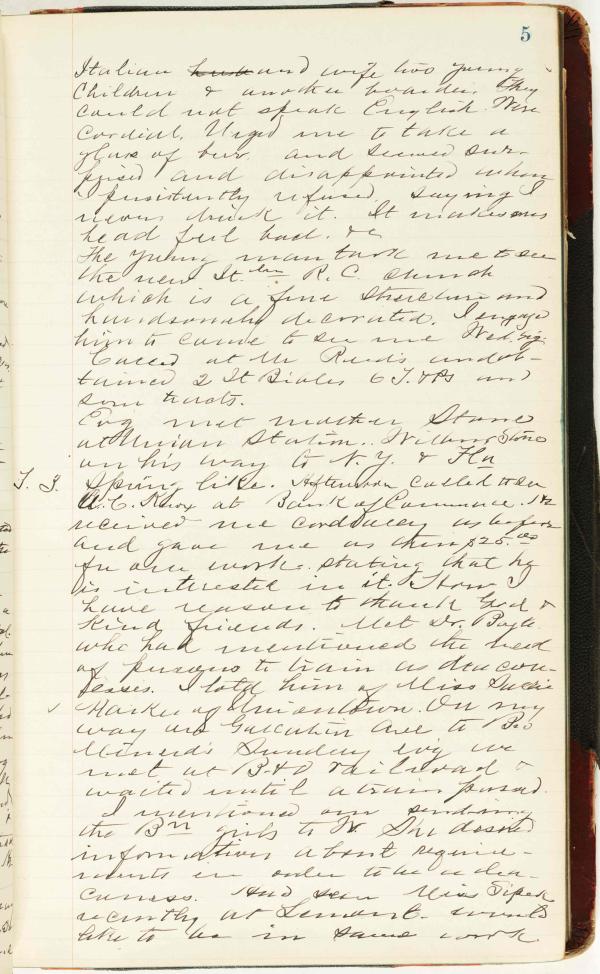 5
Italian husb and wife two young
children & another boarder. They
could not speak English. Were
cordial. Urged me to take a
glass of beer, and seemed sur-
prised and disappointed when
I persistently refused, saying I
never drink it. It makes my
head feel bad. &c
The young man took me to see
the new It. R. C. Church
which is a fine structure and
handsomely decorated. I engaged
him to come to see me Wed. evg.
Called at Mr Reed's and ob-
tained 2 It Bibles 6 T. & Ps and
some tracts.
Evg met mother Stone
at Union Station. William Stone
on his way to N. Y. &
T. 3. Spring like. Afternoon called to see
A. C. Knox at Bank of Commerce. He
received me cordially as before
and gave me as then $25.00
for our work. stating that he
is interested in it. How I
have reason to thank God &
kind friends. Met Dr.
who had mentioned the need
of persons to train as deacon-
esses. I told him of Miss
of Uniontown. On my
way Ave to Bro
Sunday evg we
met at B. & O railroad &
waited until a train passed.
I mentioned our sending
the girls to W. She desired
information about require-
ments in order to be a dea-
coness. Had seen Miss
recently at Lemont. would
like to be in same work